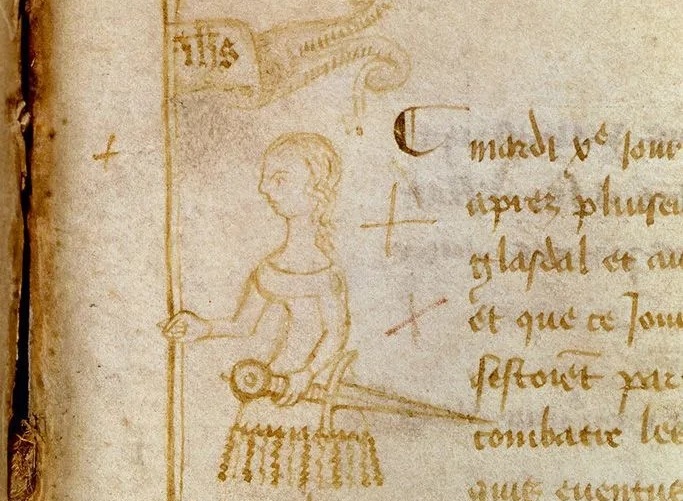 ihs
mardi xe Jour
aprez pluseu
glasdal et au
et que ce Jour
sestoiēt par
combatre les
quis euentus